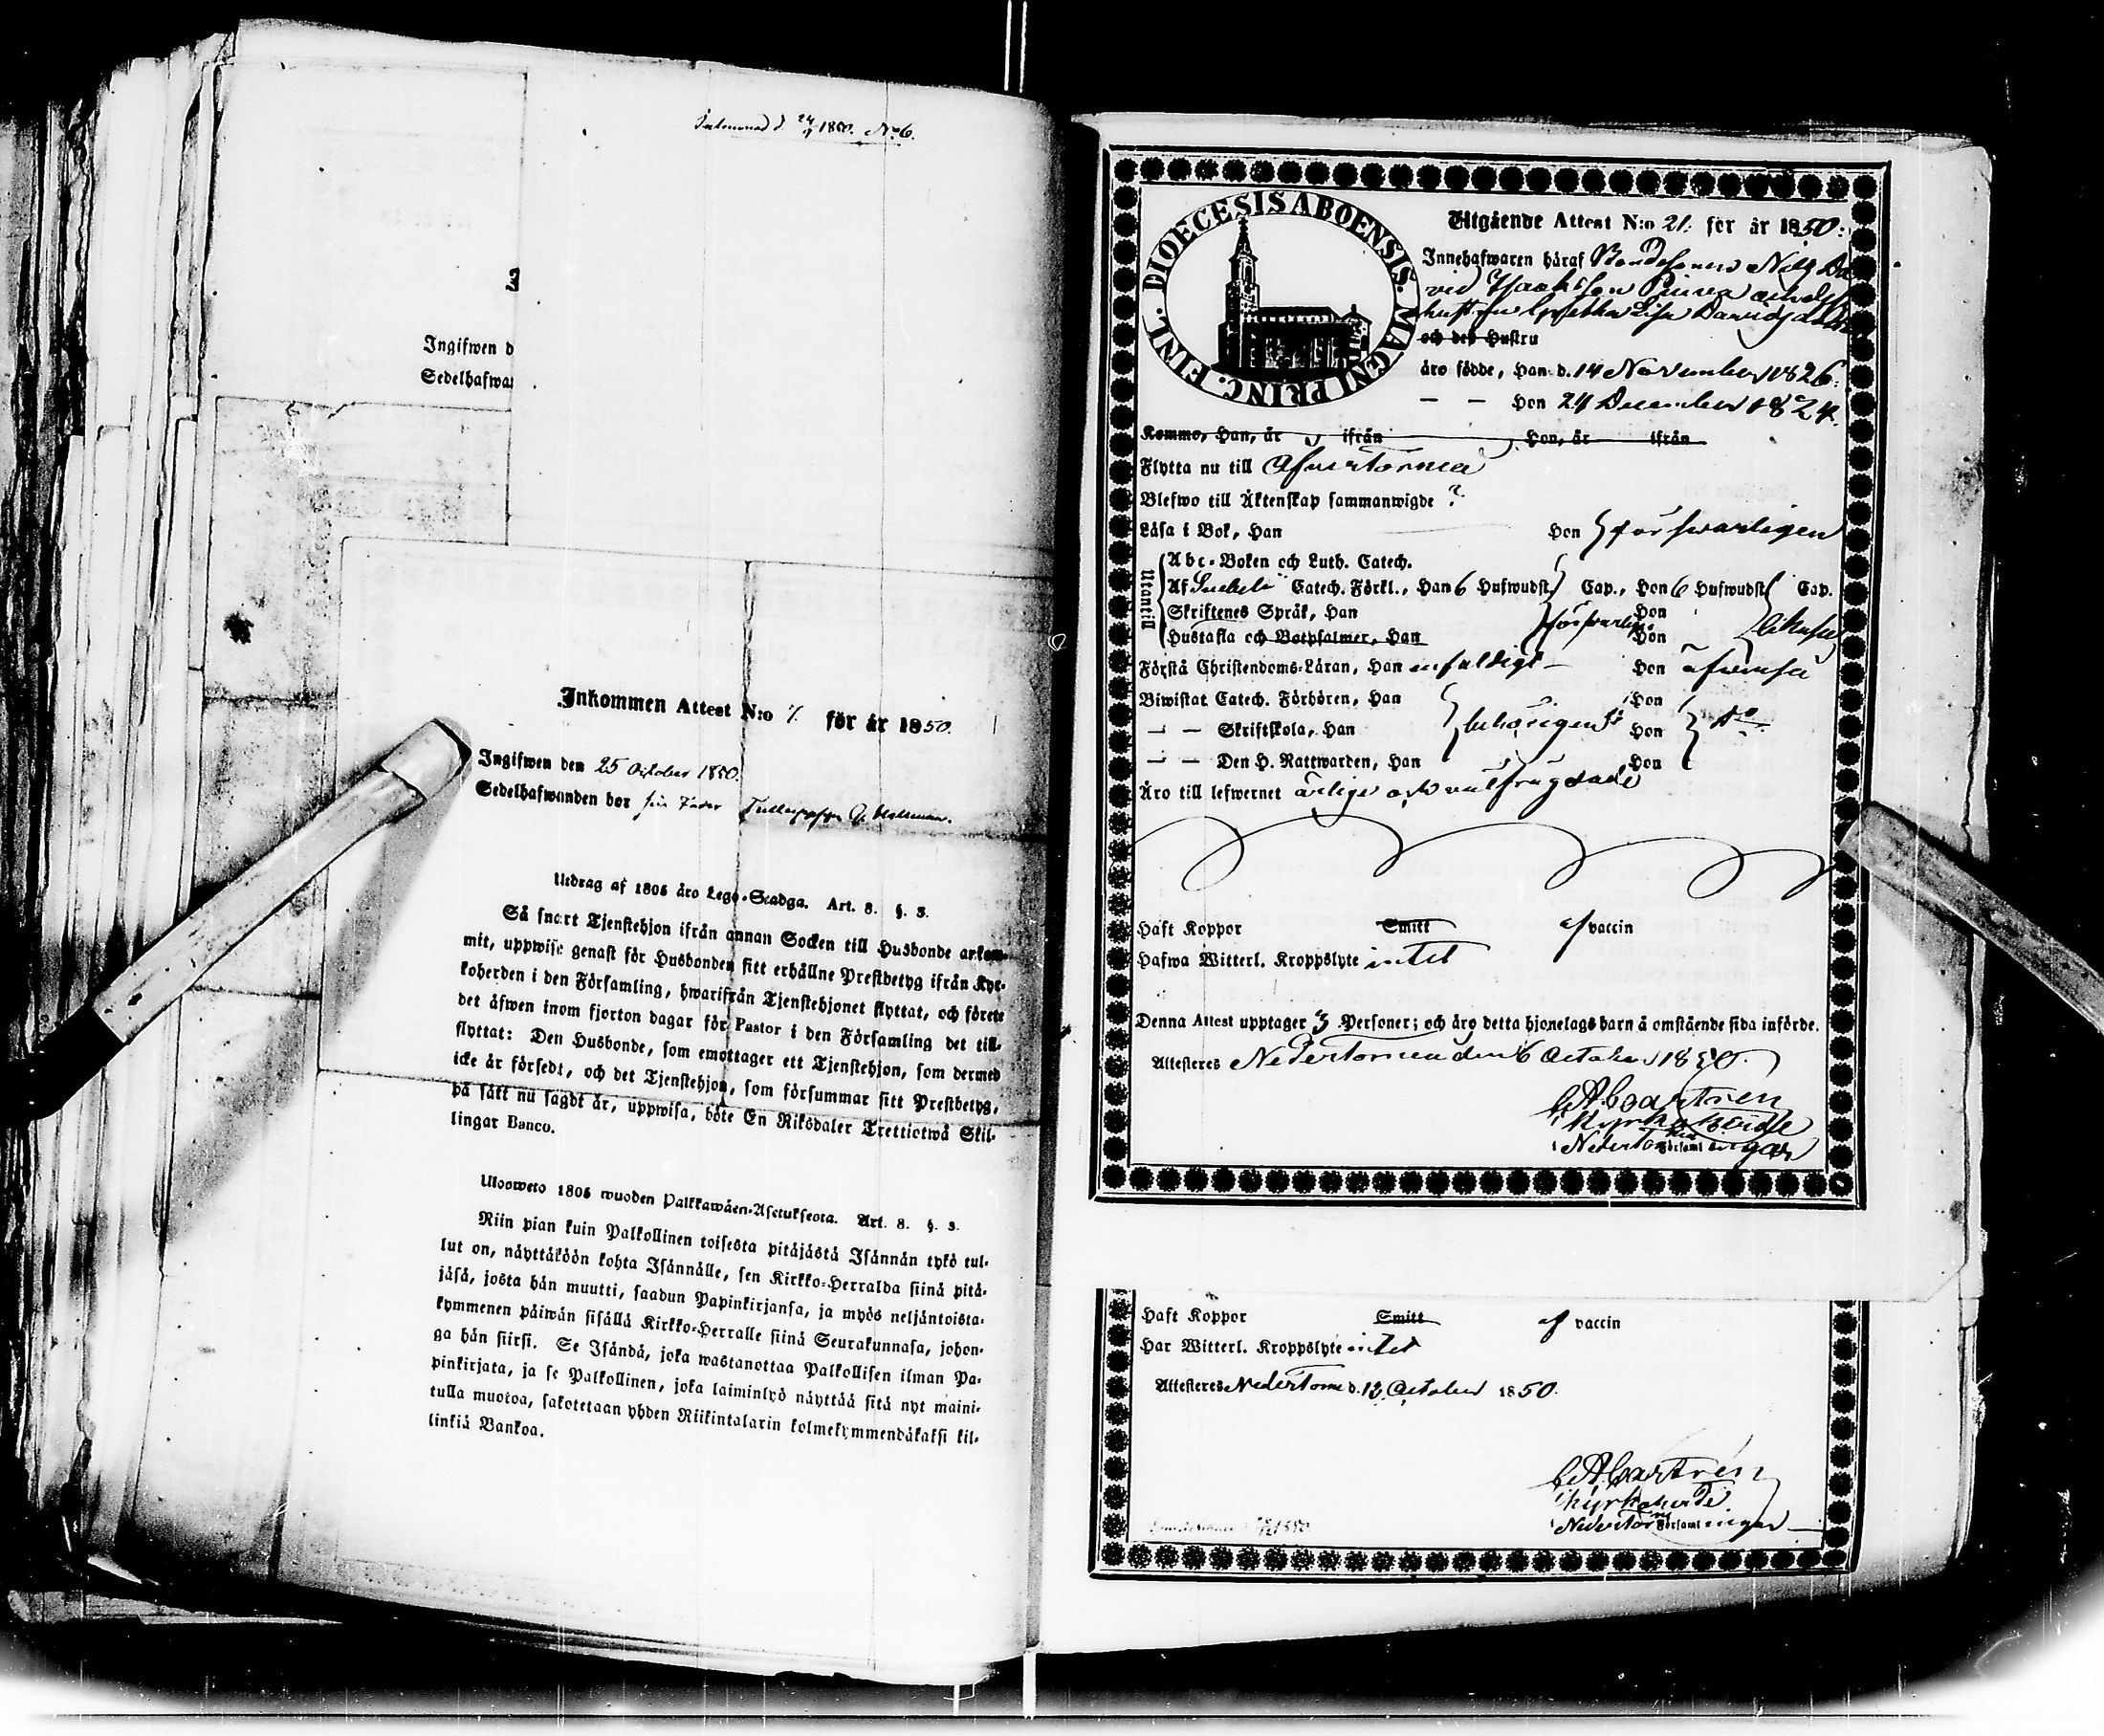 d. 24/1 1850. No 6.
Ingifwen d
Sedelhafwa
Inkommen Attest N:o 7. för år 1850.
Ingifwen den 25 October 1850.
Sedelhafwanden bor
Utdrag af 1805 års Lego-Stadga. Art. 8. §. 3.
Så snart Tjenstehjon ifrån annan Socken till Husbonde ankom-
mit, uppwise genast för Husbonden sitt erhållne Prestbetyg ifrån Kyr-
koherden i den Församling, hwarifrån Tjenstehjonet flyttat, och förete
det äfwen inom fjorton dagar för Pastor i den Församling det till-
flyttat: Den Husbonde, som emottager ett Tjenstehjon, som dermed
icke är försedt, och det Tjenstehjon, som försummar sitt Prestbetyg,
på sätt nu sagdt är, uppwisa, böte En Riksdaler Trettiotwå Skil-
lingar Banco.
Ulosweto 1805 wuoden Palkkawäen-Asetuksesta. Art. 8. §. 3.
Niin pian kuin Palkollinen toisesta pitäjästä Isännän tykö tul-
lut on, näyttäköön kohta Isännälle, sen Kirkko-Herralda siinä pitä-
jäsä, josta hän muutti, saadun Papinkirjansa, ja myös neljäntoista-
kymmenen päiwän sisällä Kirkko-Herralle siinä Seurakunnasa, johon-
ga hän siirsi. Se Isändä, joka wastanottaa Palkollisen ilman Pa-
pinkirjata, ja se Palkollinen, joka laiminlyö näyttää sitä nyt maini-
tulla muotoa, sakotetaan yhden Riikintalarin kolmekymmendäkaksi kil-
linkiä Bankoa.
DIOECESIS ABOENSIS. MAGNI PRINC. FINL.
Utgående Attest N:o 21. för år 1850.
Innehafwaren häraf Bondesonen Nils Da
vid Isaaksson och
hustru Lisa Davidsdotter
och dess Hustru
äro födde, Han d. 14 November 1826.
— — Hon 24 December 1824.
Komme, Han, år ifrån Hon, år ifrån
Flytta nu till Öfvertorneå
Blefwo till Äktenskap sammanwigde ?
Läsa i Bok, Han Hon försvarligen
Abc-Boken och Luth. Catech.
Utantill Af Svebelii Catech. Förkl., Han 6 Hufwudst. Cap., Hon 6 Hufwudst. Cap.
Skriftenes Språk, Han Hon
Hustafla och Botpsalmer, Han försvarl. Hon likaså
Förstå Christendoms-Läran, Han enfaldigt Hon äfvenså
Biwistat Catech. Förhören, Han Hon
— — Skriftskola, Han behörigen Hon Do
— — Den H. Nattwarden, Han Hon
Äro till lefwernet ärlige och välfrägdade
Haft Koppor Smitt af vaccin
Hafwa Witterl. Kroppslyte intet
Denna Attest upptager 3 Personer; och äro detta hjonelags barn å omstående sida införde.
Attesteras Nedertorneå den 6 October 1850.
C A Castrén
Kyrkoherde
Nedertorneå Församlingar
Haft Koppor Smitt af vaccin
Har Witterl. Kroppslyte intet
Attesteras Nedertorne d. 12 October 1850.
C A Castrén
Kyrkoherde
Nedertorneå Församlingar